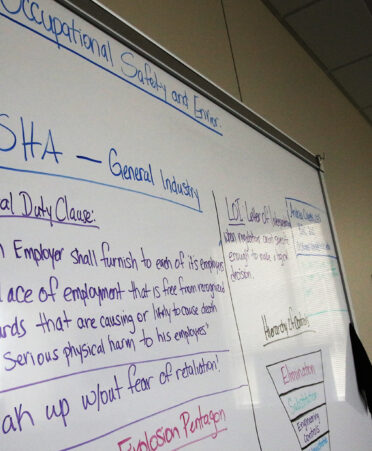 Occupational Safety and Environ.
SHA — General Industry
al Duty Clause:
Employer shall furnish to each of it's employees
lace of employment that is free from recognized
ards that are causing or likely to cause death
Serious physical harm to his employees"
eak up w/out fear of retaliation!
Explosion Pentagon
LOI: Letter of Interpretation
When regulations aren't specific
enough to make a logical
decision.
Hierarchy of Controls
Elimination
Substitution
Engineering
Controls